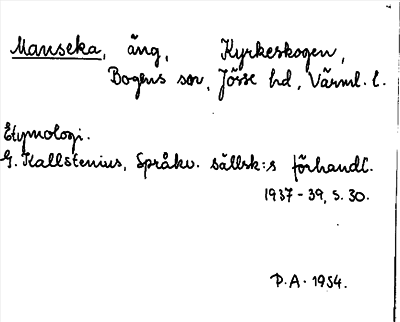 Manseka, äng, Kyrkeskogen,
Bogens sn, Jösse hd, Värml. l.
Etymologi.
G. Kallstenius, Språkv. sällsk:s förhandl.
1937-39, s. 30.
P.A. 1954.